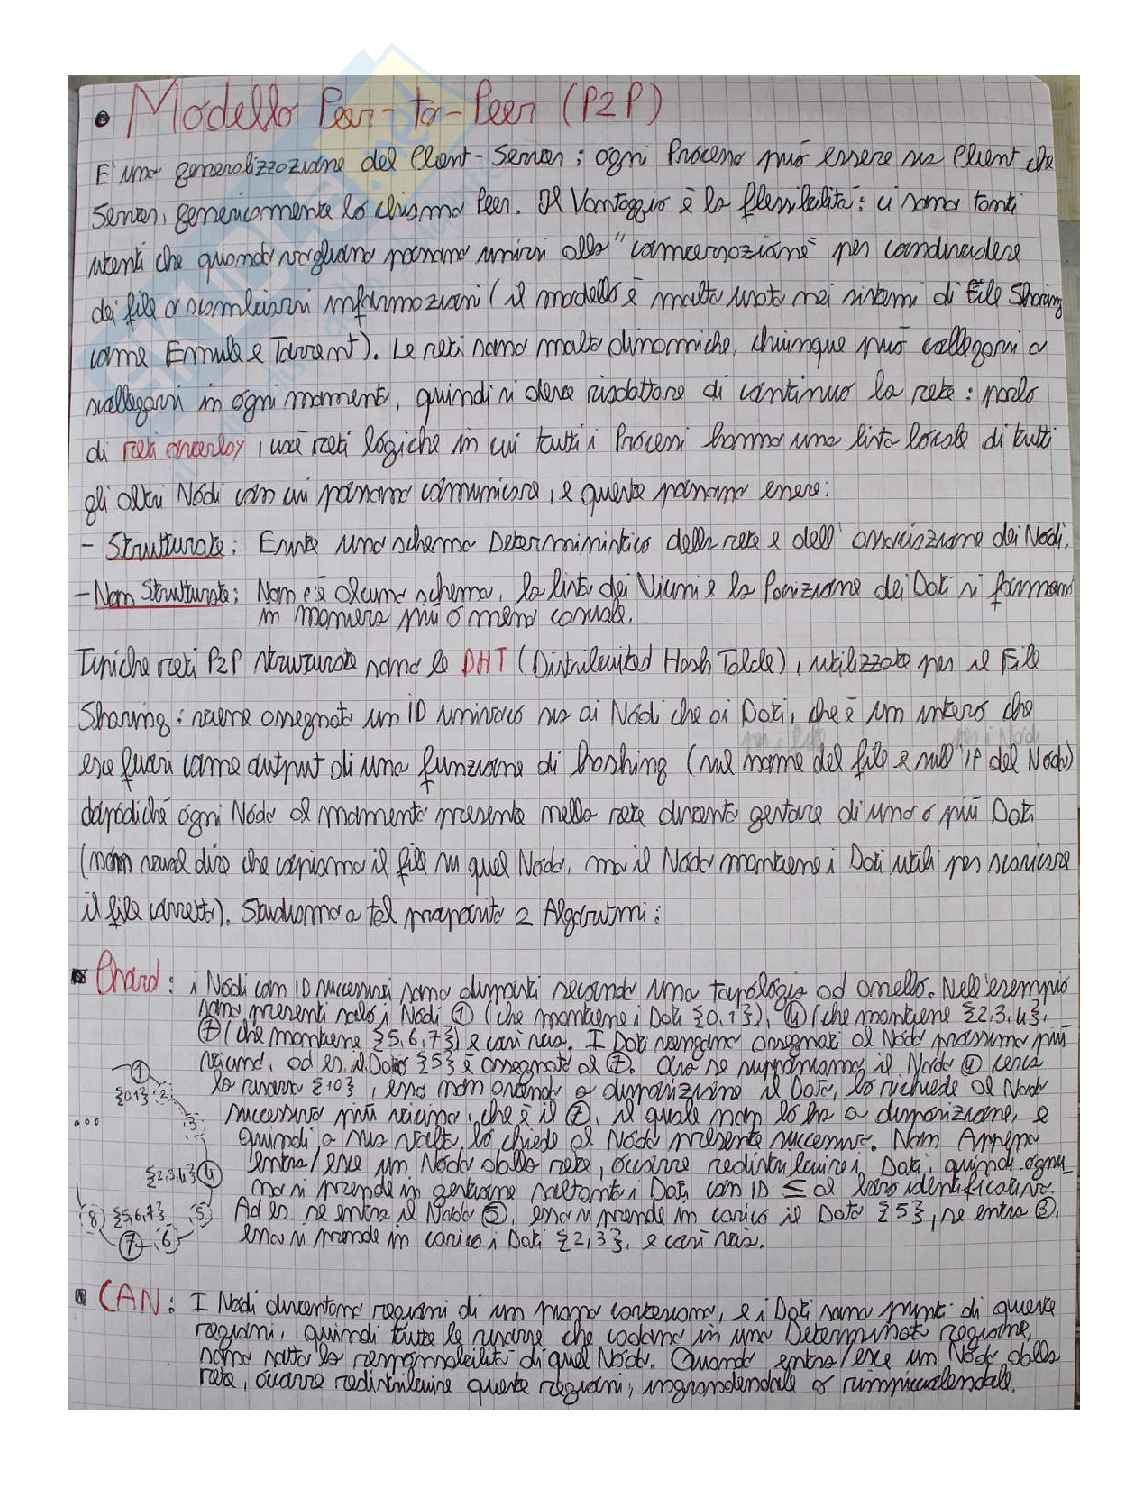 • Modello Peer-to-Peer (P2P)
È una generalizzazione del Client-Server; ogni Processo può essere sia Client che
Server, genericamente lo chiamo Peer. Il Vantaggio è la flessibilità: ci sono tanti
utenti che quando vogliono possono unirsi alla "conversazione" per condividere
dei file o scambiarsi informazioni (il modello è molto usato nei sistemi di File Sharing
come Emule e Torrent). Le reti sono molto dinamiche, chiunque può collegarsi o
scollegarsi in ogni momento, quindi si deve riadattare di continuo la rete: parlo
di reti overlay, cioè reti logiche in cui tutti i Processi hanno una lista locale di tutti
gli altri Nodi con cui possono comunicare, e queste possono essere:
- Strutturate: Esiste uno schema Deterministico della rete e dell'
dei Nodi.
- Non Strutturate: Non c'è alcuno schema, la lista dei Vicini e la Posizione dei Dati si formano
in maniera più o meno casuale.
Tipiche reti P2P strutturate sono le DHT (Distributed Hash Table), utilizzate per il File
Sharing: viene assegnato un ID univoco sia ai Nodi che ai Dati, che è un intero che
per i file per i Nodi
esce fuori come output di una funzione di hashing (sul nome del file e sull'IP del Nodo)
dopodiché ogni Nodo al momento presente nella rete diventa gestore di uno o più Dati
(non vuol dire che copiamo il file su quel Nodo, ma il Nodo mantiene i Dati utili per scaricare
il file corretto). Studiamo a tal proposito 2 Algoritmi:
Chord: i Nodi con ID successivi sono disposti secondo una topologia ad anello. Nell'esempio
sono presenti solo i Nodi 1 (che mantiene i Dati {0,1}), 4 (che mantiene {2,3,4}),
7 (che mantiene {5,6,7}) e così via. I Dati vengono assegnati al Nodo prossimo più
vicino, ad es. il Dato {5} è assegnato al 7. Ora se supponiamo il Nodo 4 cerca
la risorsa {10}, esso non avendo a disposizione il Dato, lo richiede al Nodo
successivo più vicino, che è il 7, il quale non lo ha a disposizione, e
quindi a sua volta lo chiede al Nodo presente successivo. Non Appena
entra/esce un Nodo dalla rete, occorre redistribuire i Dati, quindi ognu-
no si prende in gestione soltanto i Dati con ID ≤ al loro identificativo.
Ad es. se entra il Nodo 5, esso si prende in carico il Dato {5}, se entra 3,
esso si prende in carico i Dati {2,3}, e così via.
1
{0,1} 2
... 3
{2,3,4} 4
8 {5,6,7} 5
7 6
CAN: I Nodi diventano regioni di un piano cartesiano, e i Dati sono punti di queste
regioni, quindi tutte le risorse che cadono in una Determinata regione,
sono sotto la responsabilità di quel Nodo. Quando entra/esce un Nodo dalla
rete, occorre redistribuire queste regioni, ingrandendole o rimpicciolendole.